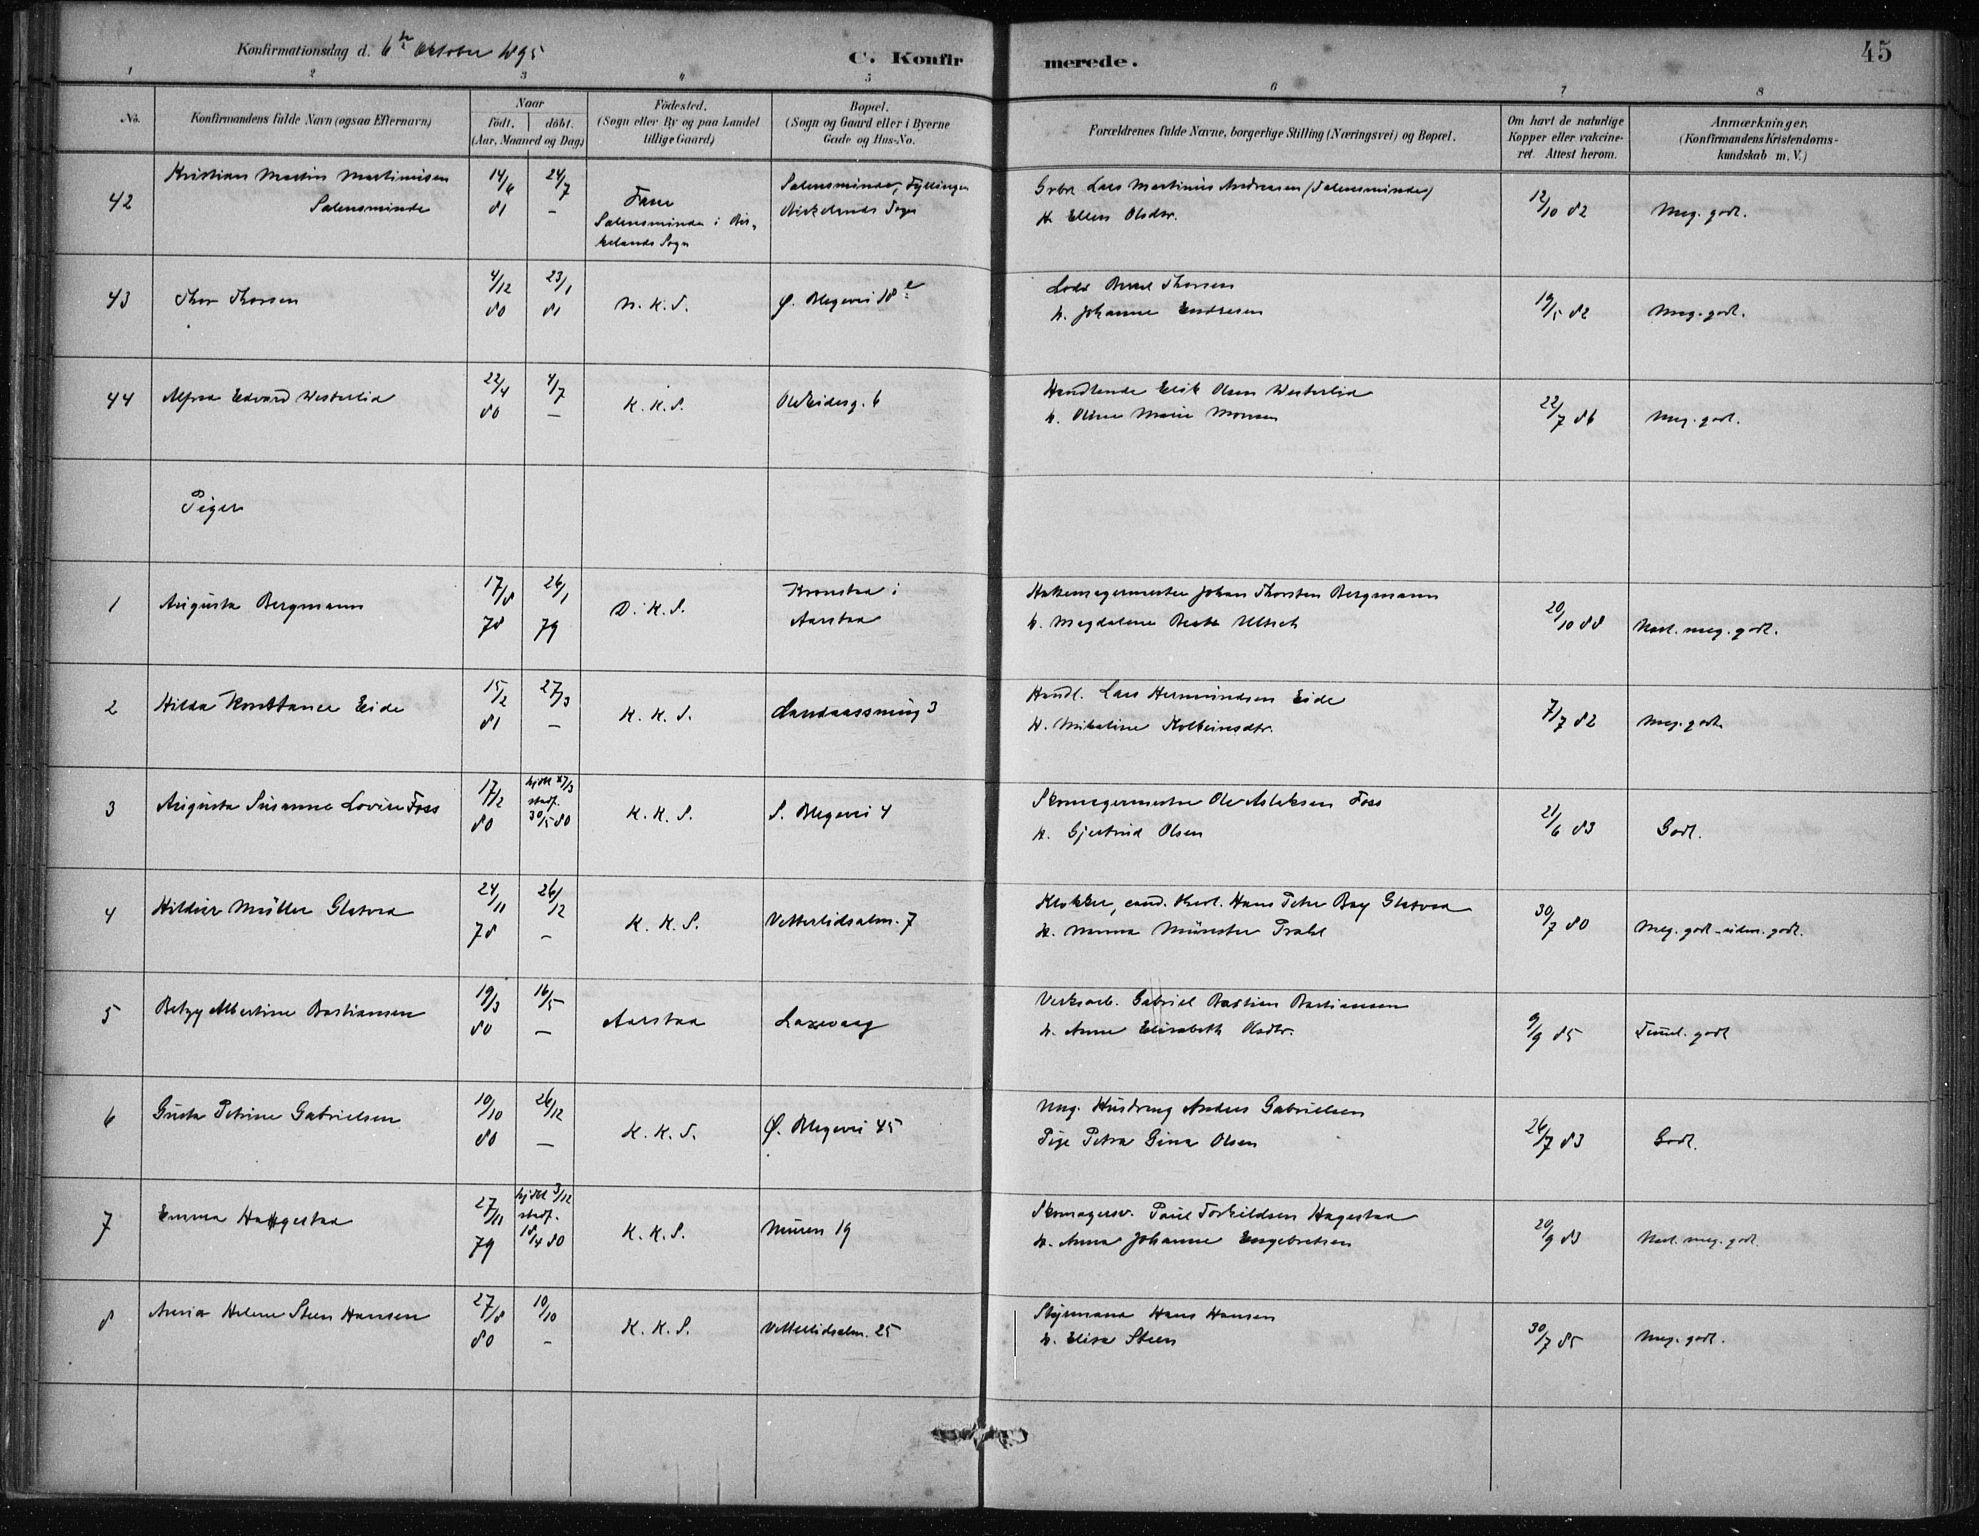 Konfirmationsdag d. 6te Oktober 1895
C. Konfirmerede.
45
1 2 3 4 5 6 7 8
No.
Konfirmandens fulde Navn (ogsaa Efternavn)
Naar
födt. döbt.
(Aar, Maaned og Dag)
Födested.
(Sogn eller By og paa Landet
tillige Gaard)
Bopæl.
(Sogn og Gaard eller i Byerne
Gade og Hus-No.
Forældrenes fulde Navne, borgerlige Stilling (Næringsvei) og Bopæl.
Om havt de naturlige
Kopper eller vakcine-
ret. Attest herom.
Anmærkninger.
(Konfirmandens Kristendoms-
kundskab m. V.)
42 Kristian Martin Martiniusen
Salensminde
14/6 81 24/7 –
Fane
Salensminde i Bir-
kelands Sogn
Salensminde, Fyllingen
Birkelands Sogn
Grbr Lars Martinius Andreasen (Salensminde)
H. Ellen Olsdtr.
12/10 82 Meg. godt.
43 Thor Thorsen
4/12 80 23/1 81
N. K. S.
Ø. Blegevei 18
Johanne Endresen
19/5 82 Meg. godt.
44 Alfred Edvard Westerlid
22/4 80 4/7 –
K. K. S.
Handlende Erik Olsen Westerlid
H. Oline Marie Monsen
22/7 86 Meg. godt.
Piger
1 Augusta Bergmann
17/8 78 26/1 79
D. K. S.
Kronstad i
Aarstad
Johan Thorsten Bergmann
H. Magdalene Beate
20/10 88 Nest. meg. godt.
2 Hilda Konstance Eide
15/2 81 27/3 –
K. K. S.
Landaassmug 3
Handl. Lars Hermundsen Eide
H. Mikaline Kolbeinsdtr.
7/7 82 Meg. godt
3 Augusta Susanne Lovise Foss
17/2 80 hjdbt 27/3
stadf.
30/5 80
K. K. S.
S. Blegevei 4
Skomagermester Ole Aslaksen Foss
H. Gjertrud Olsen
21/6 83 Godt.
4 Hildur Müller Glatved
24/11 78 26/12 –
K. K. S.
Vetterlidsalm. 7
Klokker, cand. theol. Hans Peter Bay Glatved
H. Nanna Münster Prahl
30/7 80 Meg. godt - udm. godt.
5 Betzy Albertine Bastiansen
19/3 80 16/5 –
Aarstad
Laxevaag
Verksarb. Gabriel Bastian Bastiansen
H. Anne Elisabeth Olsdtr.
9/9 85 Temmel. godt
6 Gusta Petrine Gabrielsen
10/10 80 26/12 –
K. K. S.
Ø. Blegevei 45
Ung. Anders Gabrielsen
Pige Petra Gina Olsen
26/7 83 Godt.
7 Emma Hagestad
27/11 79 hjdbt 3/12
stadf.
18/4 80
K. K. S.
Muren 19
Skomagersv. Paul Torkildsen Hagestad
H. Anna Johanne Engebretsen
20/9 83 Nest. meg. godt.
8 Helene Steen Hansen
27/8 80 10/10 –
K. K. S.
Vetterlidsalm. 25
Styrmand Hans Hansen
H. Elisa Steen
30/7 85 Meg. godt.